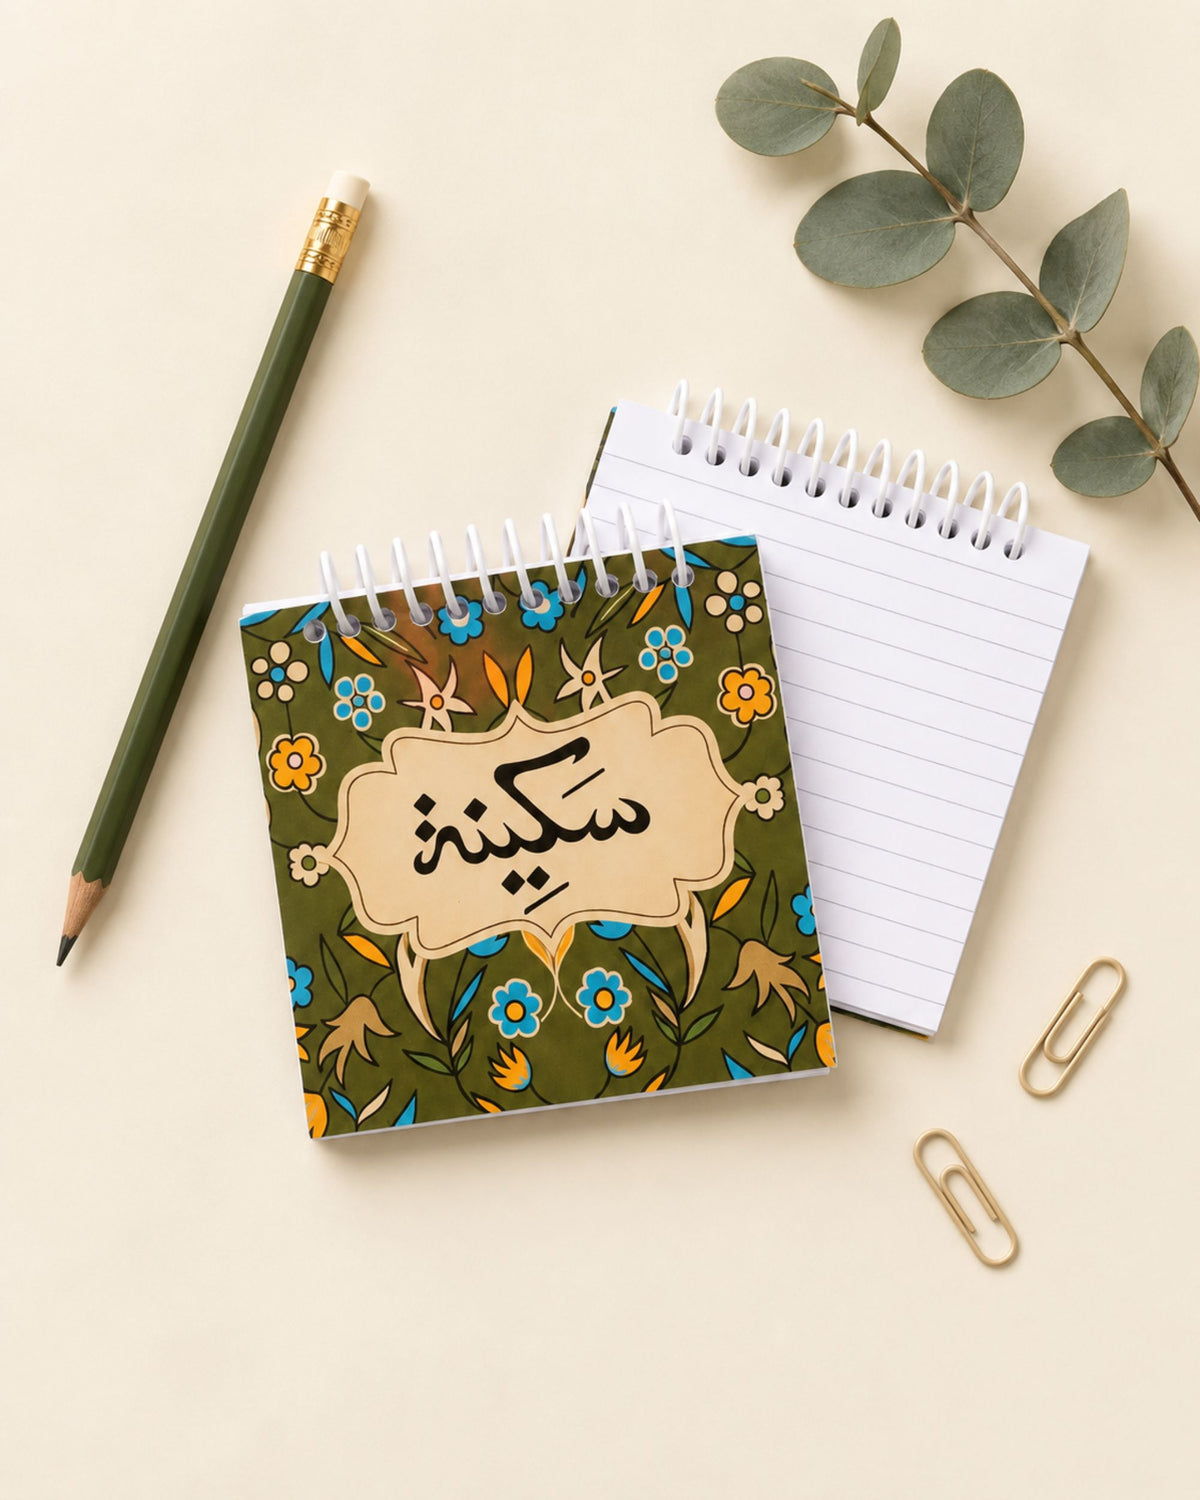 سَكِينة